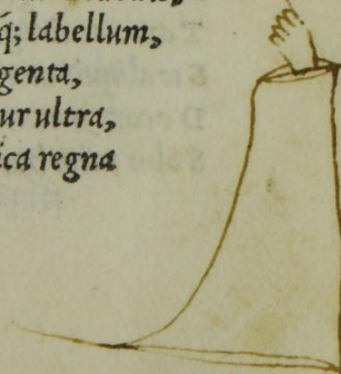 q́; labellum,
genta,
ur ultra,
ica regna